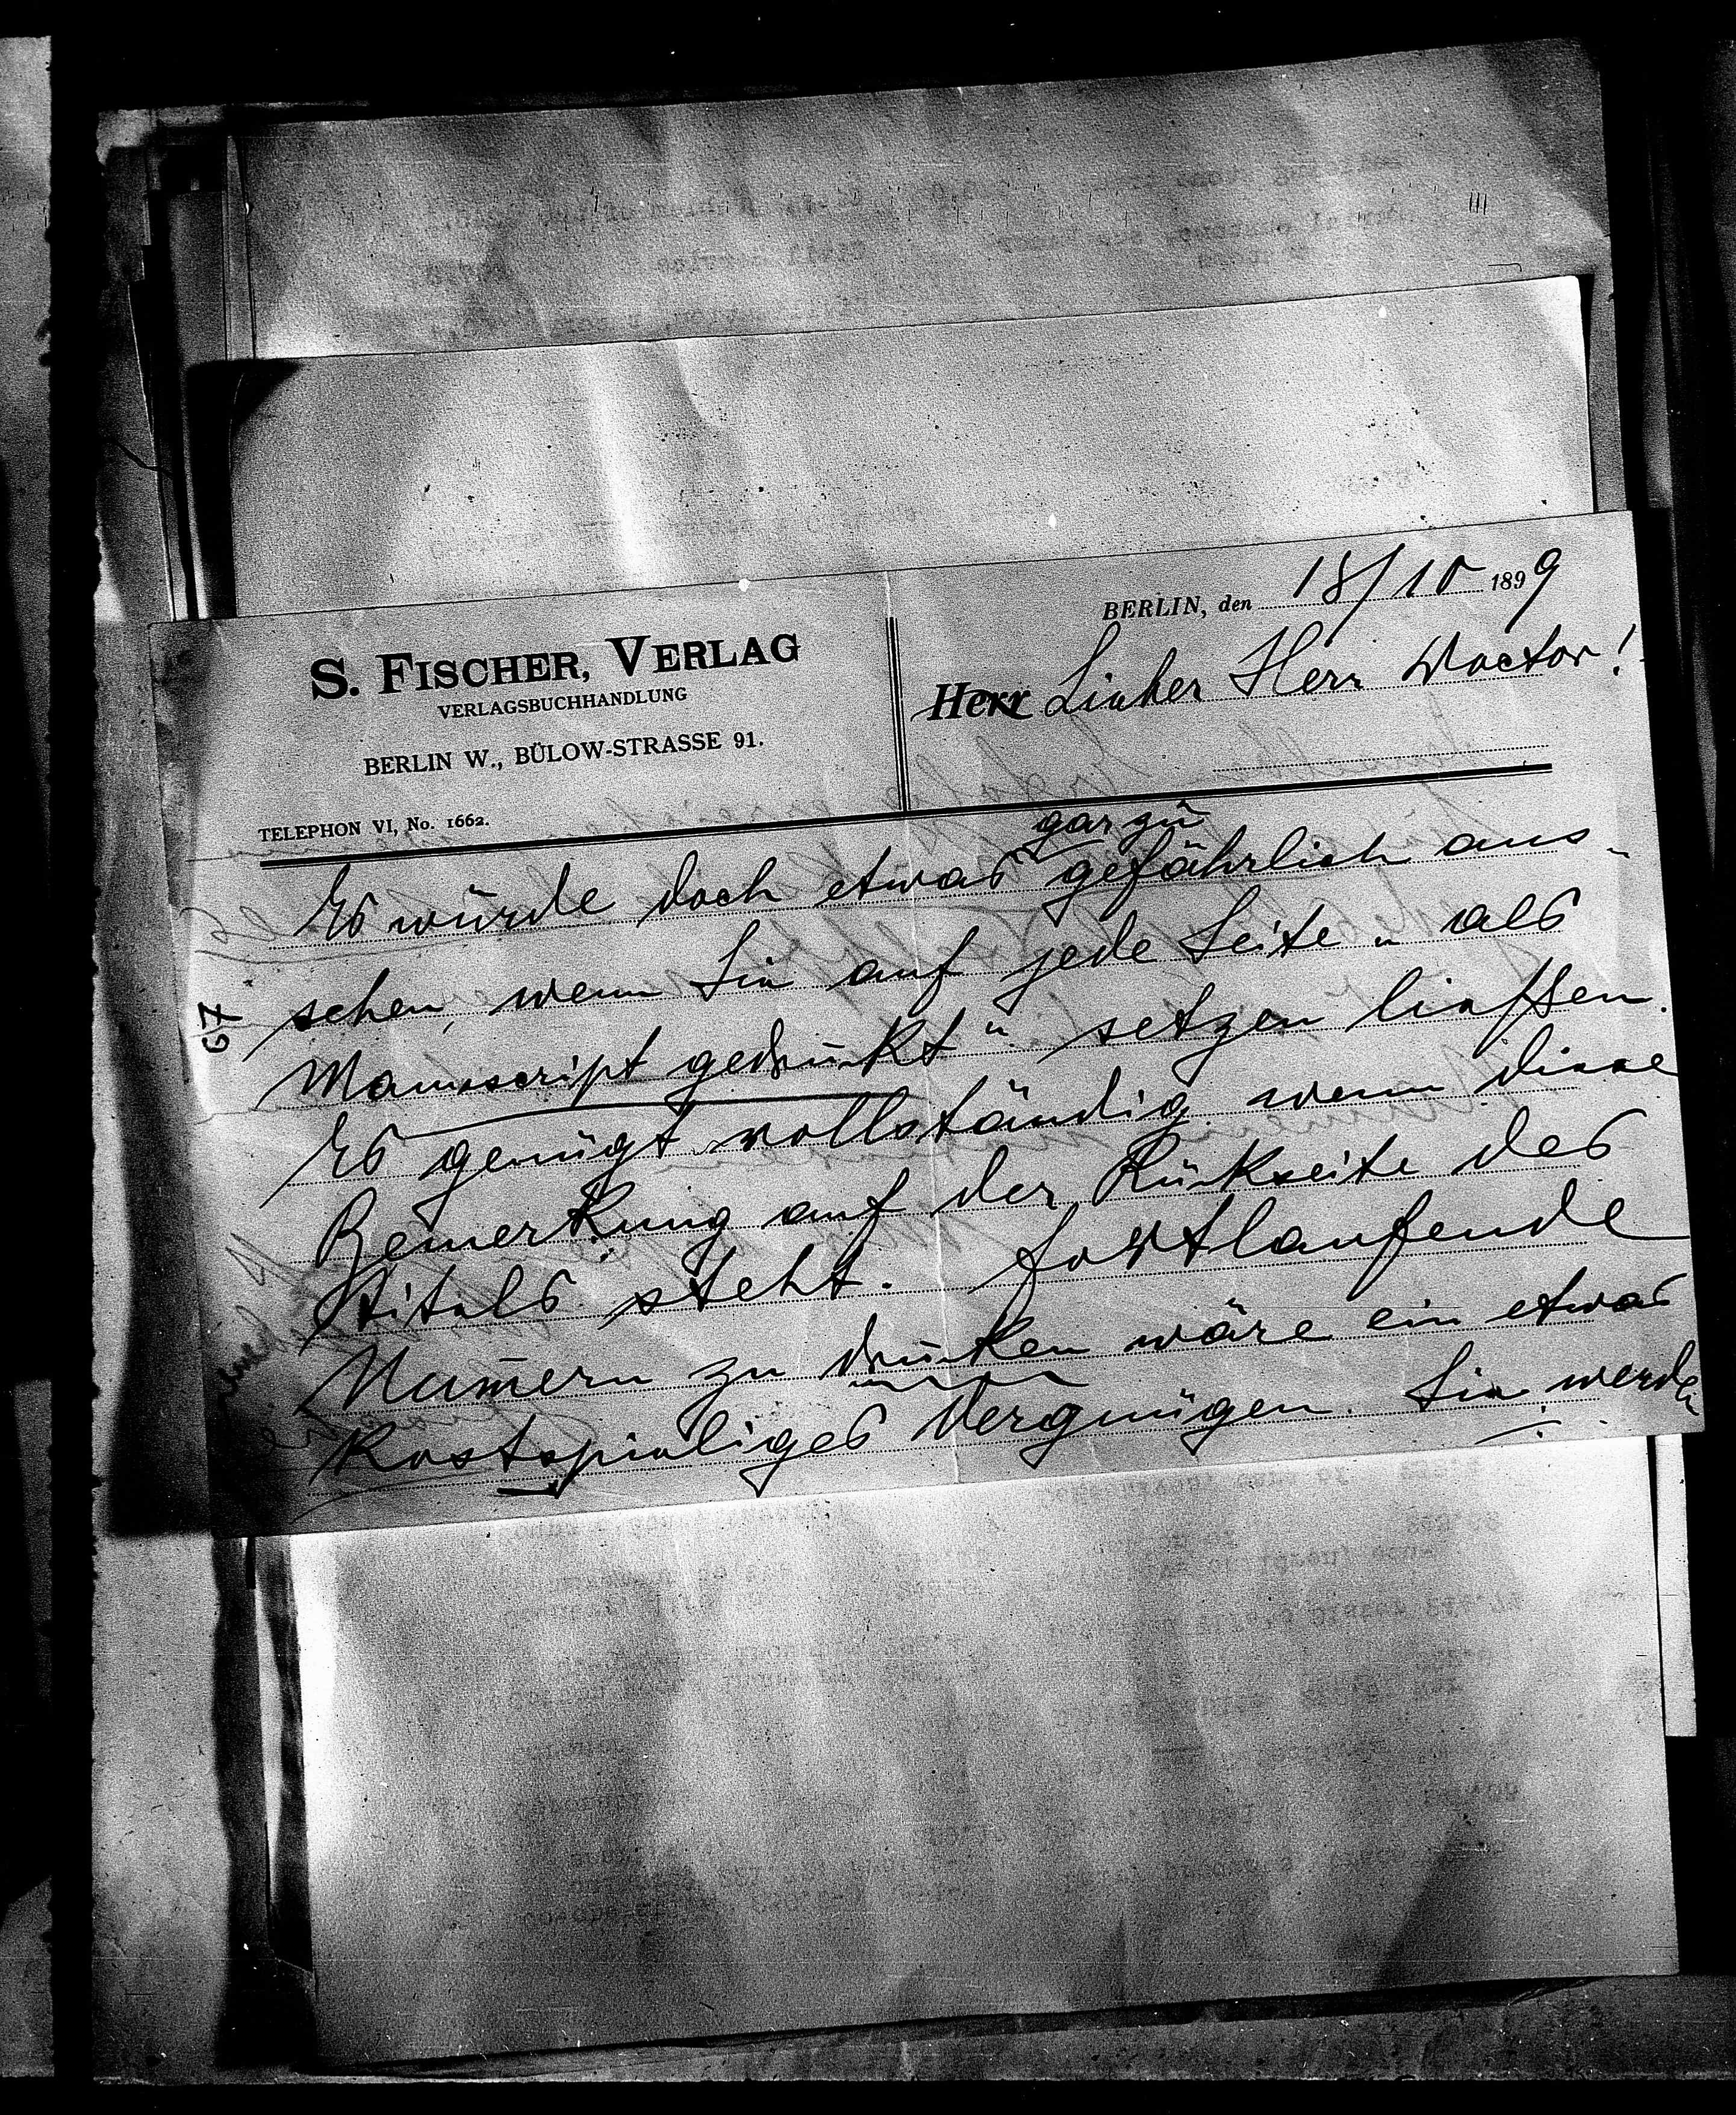 BERLIN, den 18/10 1899
S. FISCHER, VERLAG
VERLAGSBUCHHANDLUNG
BERLIN W., BÜLOW-STRASSE 91.
TELEPHON VI, No. 1662.
Herr Lieber Herr Doctor!
gar zu
Es würde doch etwas gefährlich aus-
sehen, wenn Sie auf jede Seite „als
Manuscript gedruckt" setzen liessen.
Es genügt vollständig wenn diese
Bemerkung auf der Rückseite des
Titels steht. Fortlaufende
Numern zu drucken wäre ein etwas
kostspieliges Vergnügen. Sie werden
67